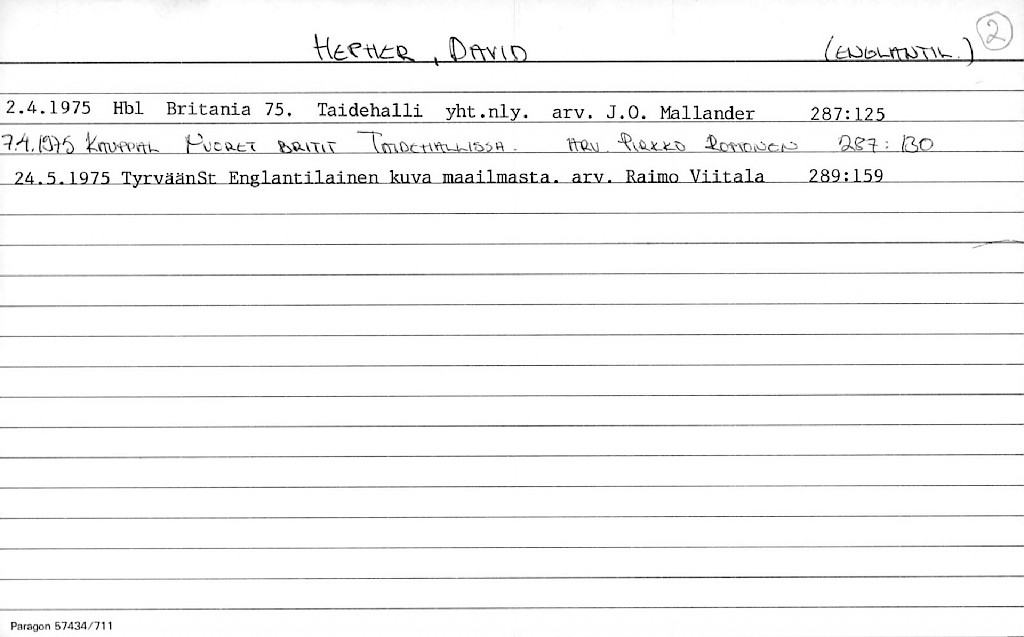 HEPHER, DAVID (ENGLANTIL.) 2
2.4.1975 Hbl Britania 75. Taidehalli yht.nly. arv. J.O. Mallander 287:125
7.4.1975 KAUPPAL NUORET BRITIT TAIDEHALLISSA. ARV. PIRKKO 287:130
24.5.1975 TyrväänSt Englantilainen kuva maailmasta. arv. Raimo Viitala 289:159
Paragon 57434/711